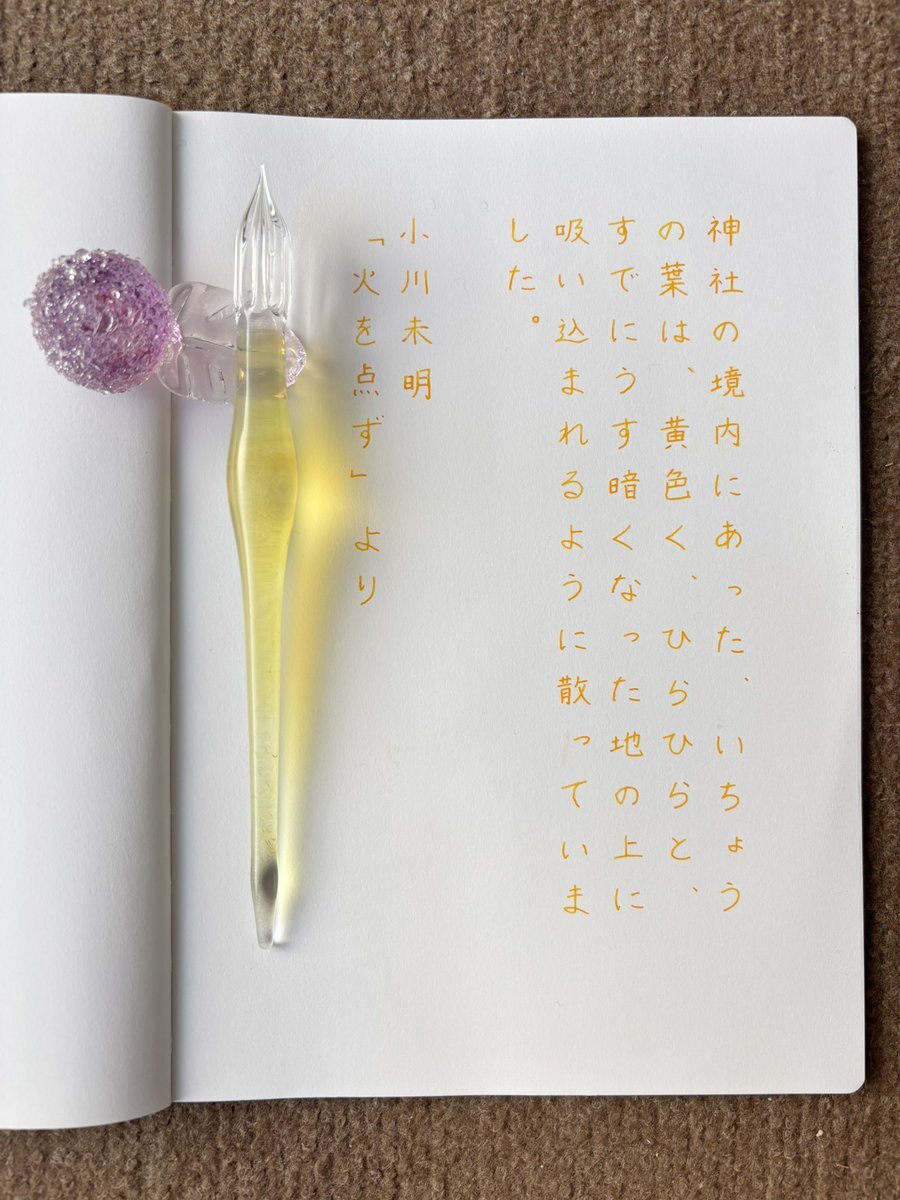 神社の境内にあった、いちょう
の葉は、黄色く、ひらひらと、
すでにうす暗くなった地の上に
吸い込まれるように散っていま
した。
小川未明
「火を点ず」より